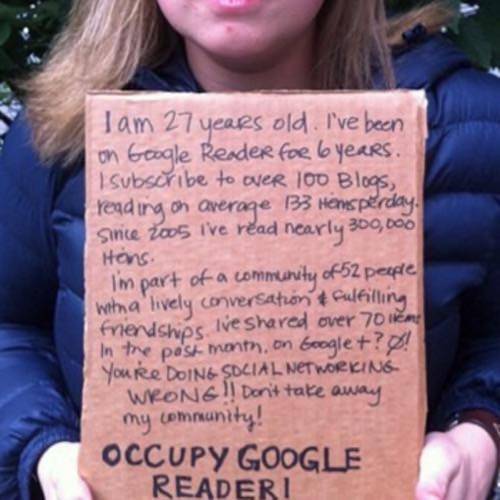 I am 27 years old. I've been
on Google Reader for 6 years.
I subscribe to over 100 Blogs,
reading on average 133 items per day.
Since 2005 I've read nearly 300,000
items.
I'm part of a community of 52 people
with a lively conversation & fulfilling
friendships. I've shared over 70 items
In the past month. on Google+? Ø!
You're DOING SOCIAL NETWORKING
WRONG!! Don't take away
my community!
OCCUPY GOOGLE
READER!